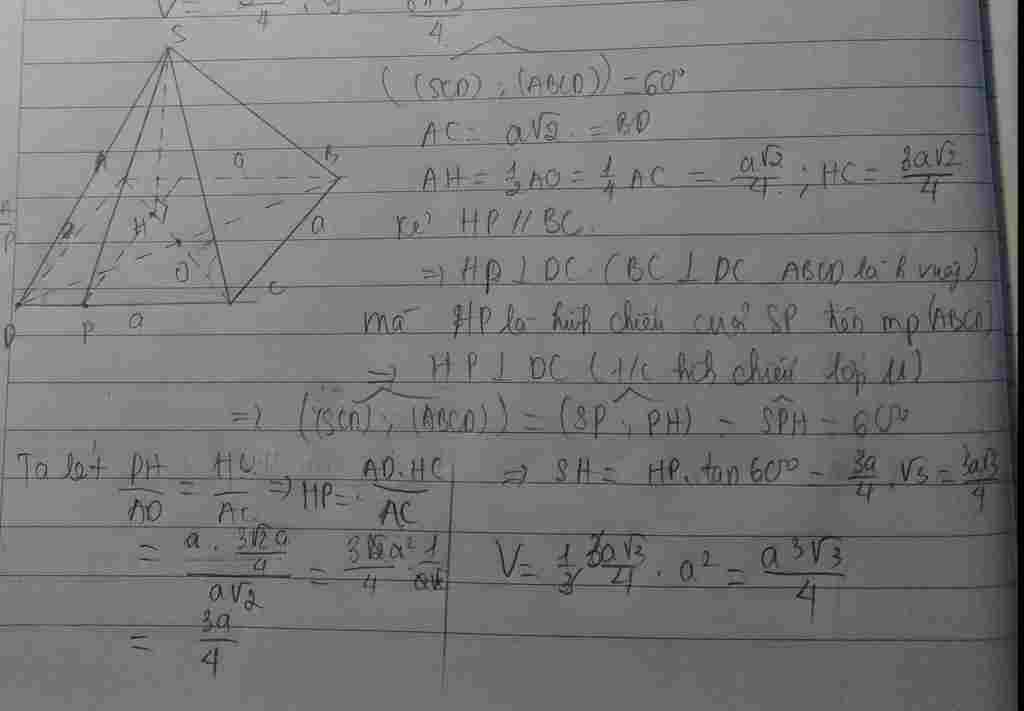 V = 4 ; 4
S
((SCD) ; (ABCD)) = 60°
AC = a√2 = BD
AH = 1/2 AO = 1/4 AC = a√2/4 ; HC = 3a√2/4
Kẻ HP // BC.
⇒ HP ⊥ DC (BC ⊥ DC ABCD là h vuông)
mà HP là hình chiếu của SP trên mp (ABCD)
⇒ HP ⊥ DC (t/c hch chiếu
⇒ ((SCD) ; (ABCD)) = (SP ; PH) = SPH = 60°
A a B
H a
O
D P a C
Ta lét PH/AD = HC/AC ⇒ HP = AD.HC/AC
= a . 3√2a/4 / a√2 = 3√2a²/4 . 1/a√2
= 3a/4
⇒ SH = HP. tan 60° = 3a/4 . √3 = 3a√3/4
V = 1/3 . 3a√3/4 . a² = a³√3/4